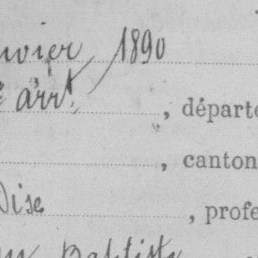 nvier 1890
e arrt. , départe
, canton
Oise , profe
Baptiste